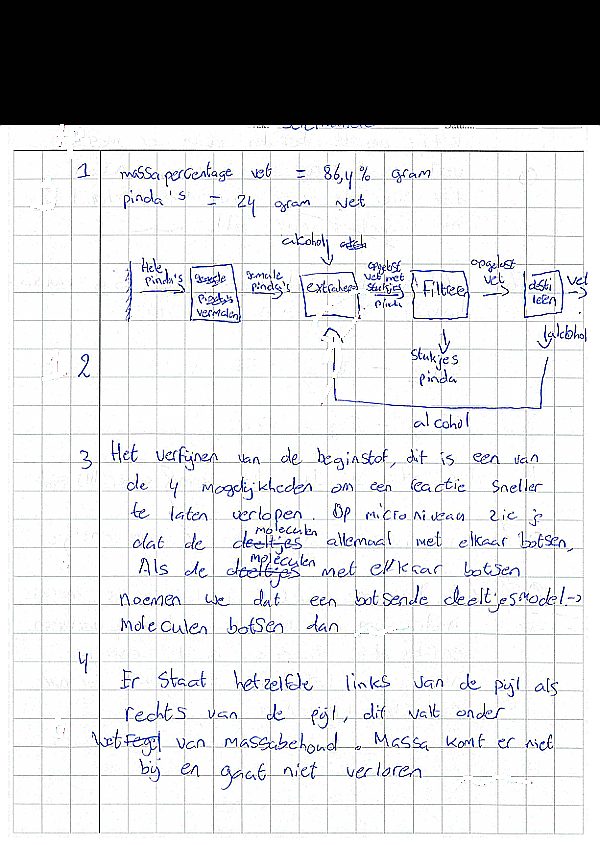 1 massapercentage vet = 86,4% gram
pinda's = 24 gram vet
alkohol
Hele pinda's
pinda's vermalen
gemale pinda's
extraheren
opgelost vet met stukjes pinda
Filtree
opgelost vet
desti leen
vet
alcohol
stukjes pinda
2
alcohol
3 Het verfijnen van de beginstof, dit is een van
de 4 mogelijkheden om een reactie sneller
te laten verlopen. Op micro niveau zie je
dat de moleculen allemaal met elkaar botsen,
Als de moleculen met elkaar botsen
noemen we dat een botsende deeltjesmodel->
moleculen botsen dan
4
Er staat hetzelfde links van de pijl als
rechts van de pijl, dit valt onder
wet van massabehoud. Massa komt er niet
bij en gaat niet verloren